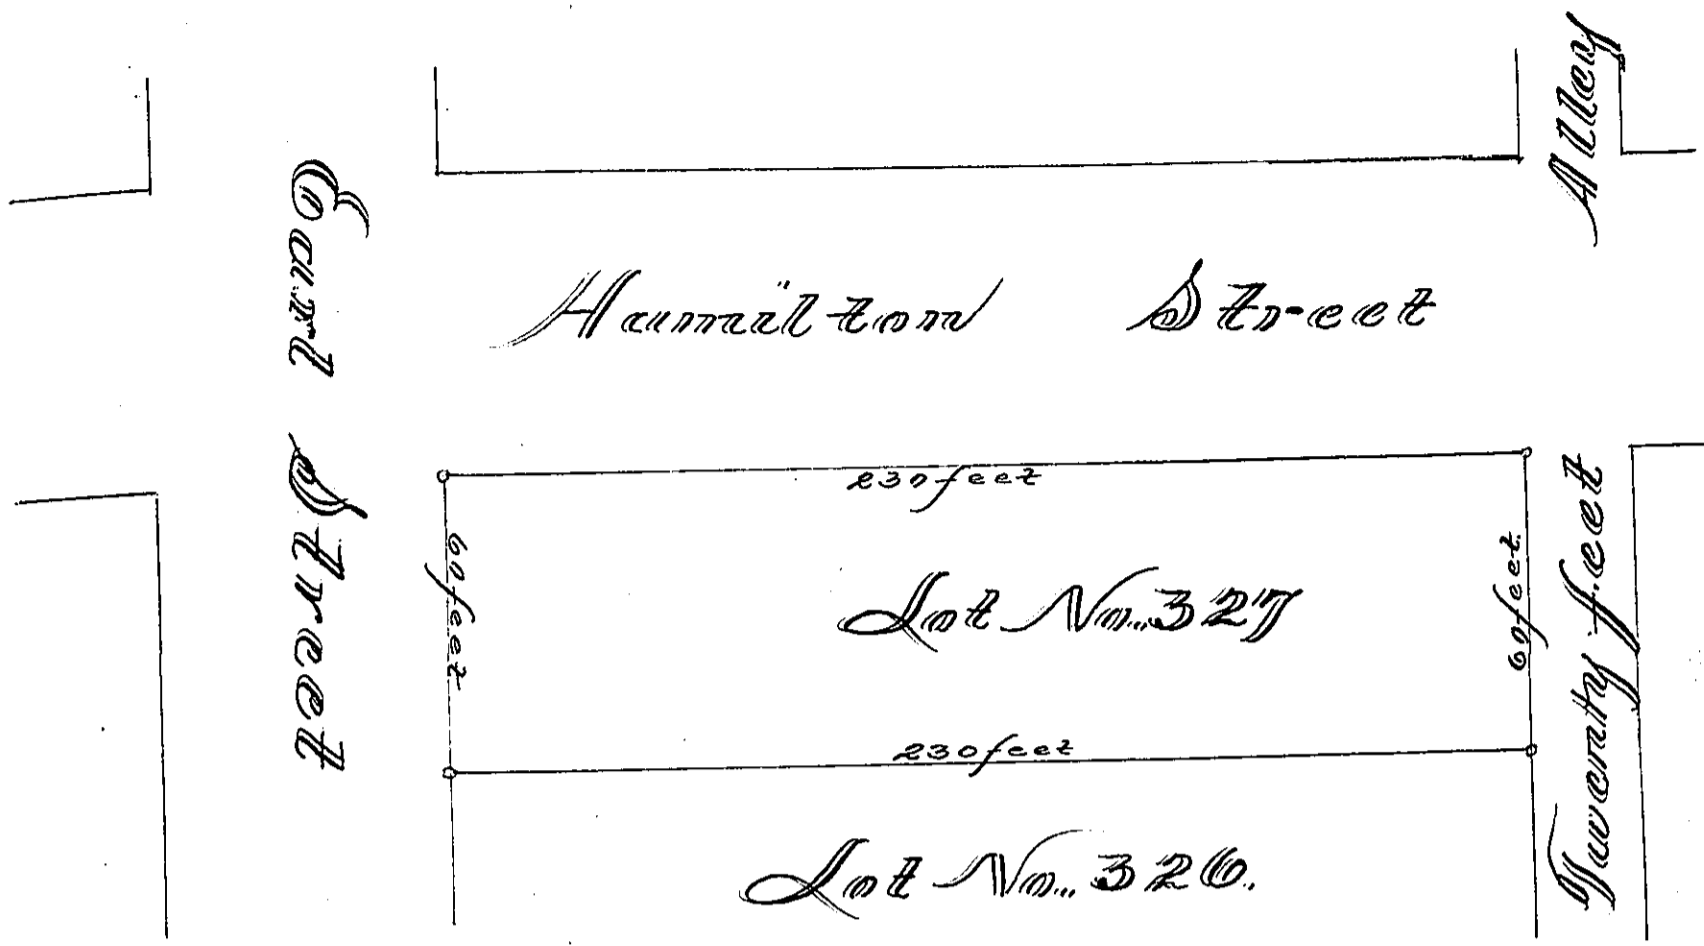 Earl Street
Hamilton Street
Twenty feet Alley
230 feet
60 feet
Lot No. 327
60 feet
230 feet
Lot No. 326.